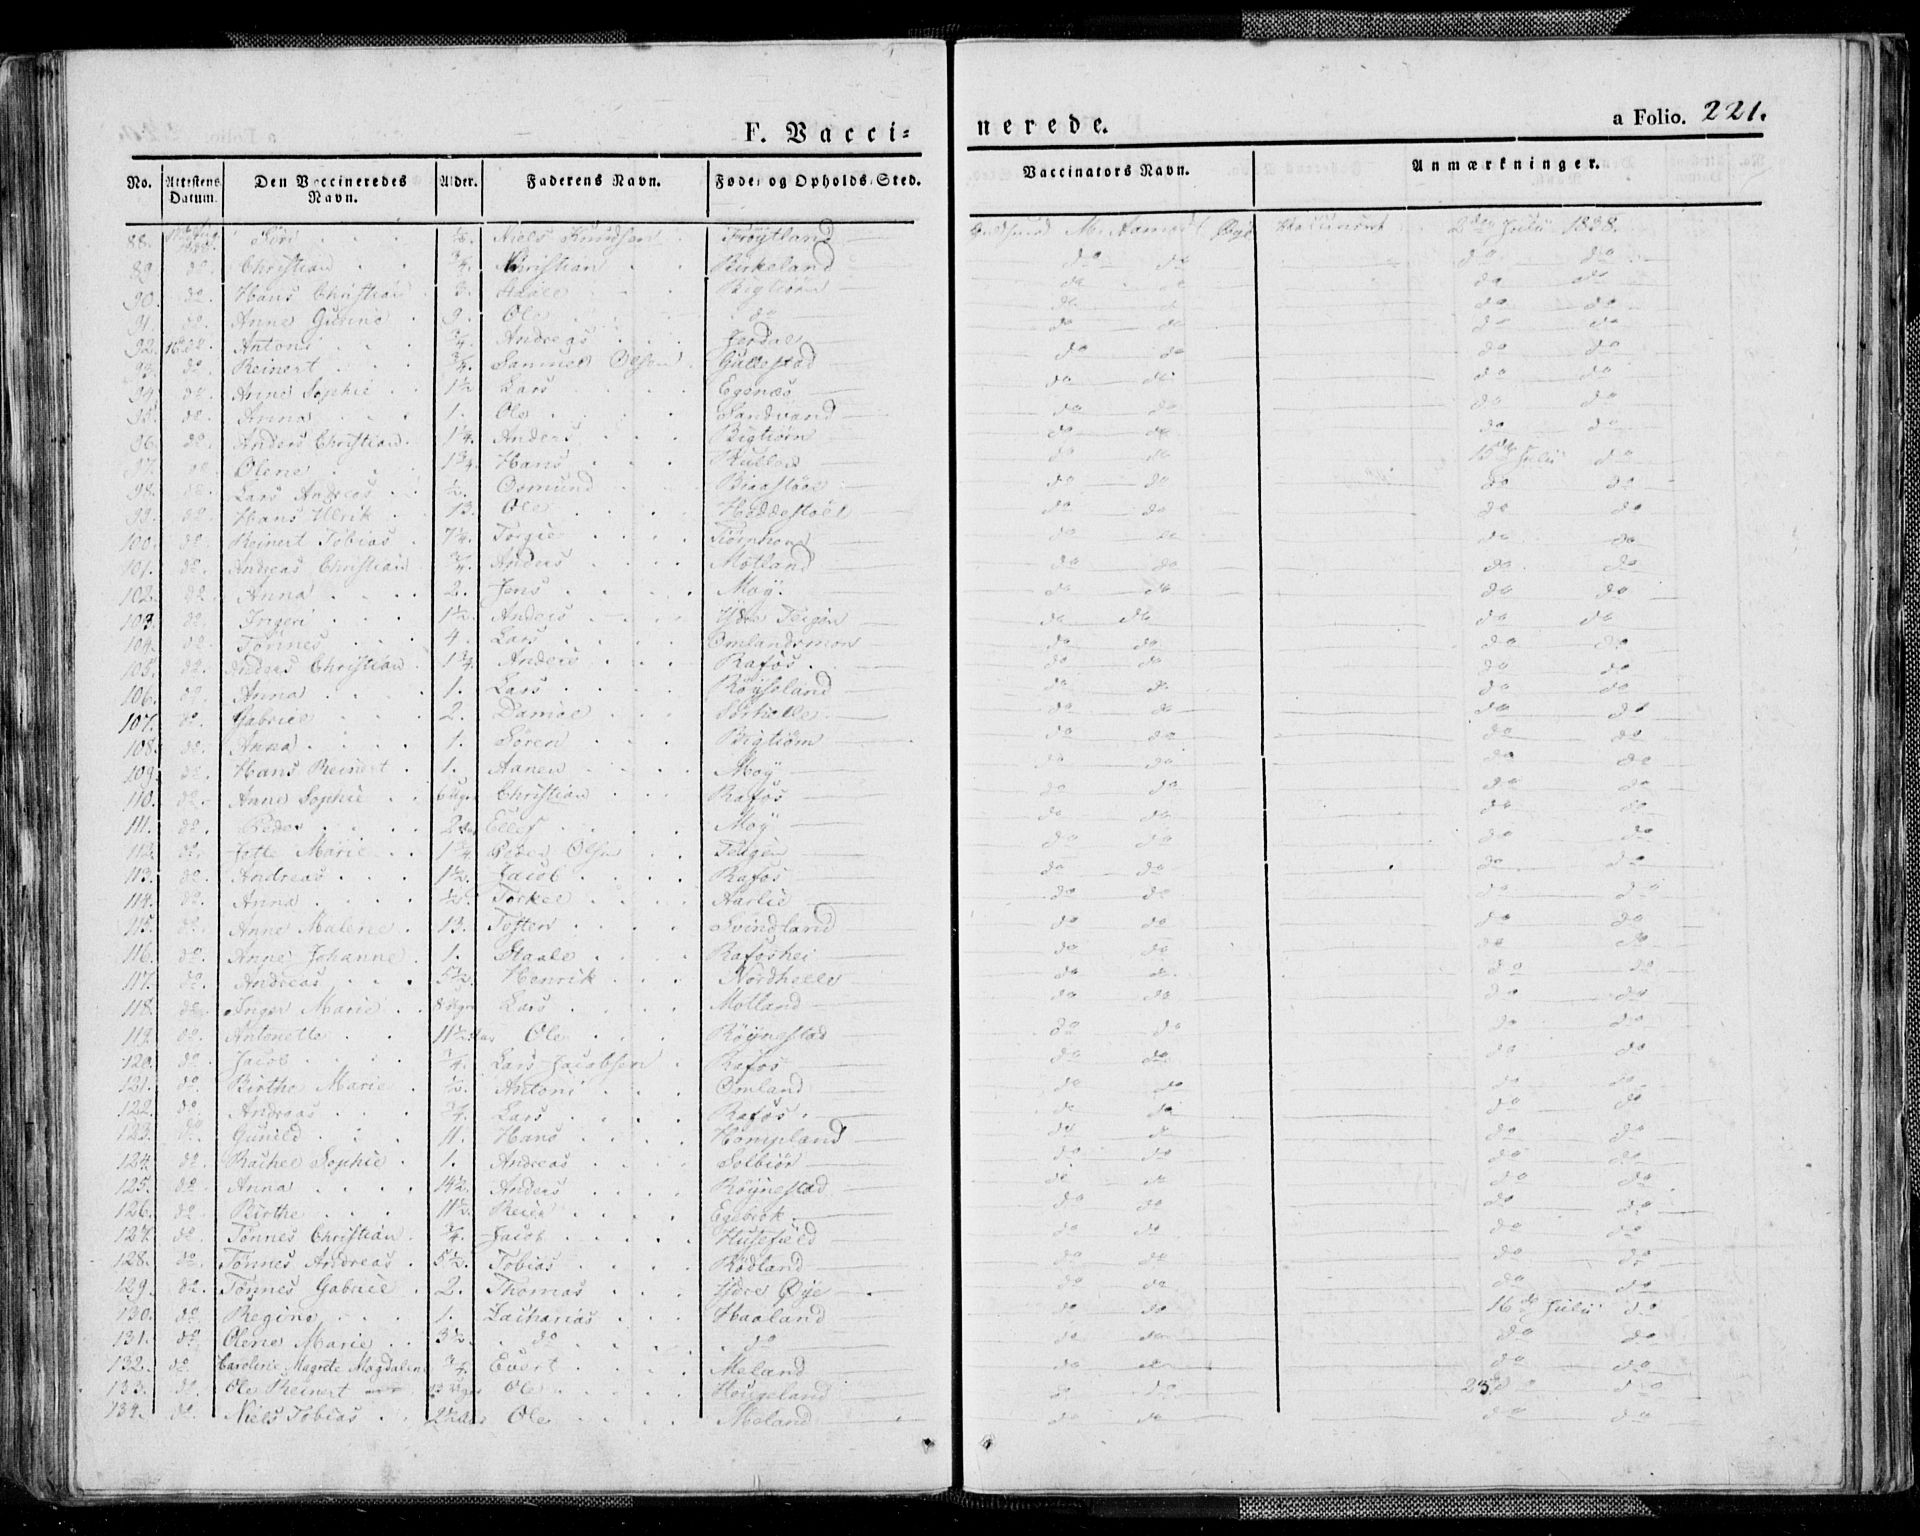 F. Vacci-
nerede.
a Folio. 221.
No. Attestens Datum. Den Vaccineredes Navn. Alder. Faderens Navn. Føde- og Opholds-Sted. Vaccinators Navn. Anmærkninger.
88. Siri Niels Knudsen Frøytland 2den Julii 1838.
89. do. Christian 3/4. Christian Birkeland do do do do
90. do. Hans Christian 3. Staale Bigtiørn do do do do
91. do. Anne Gurine 9. Ole do do do do do
92. 16 do. Antoni 3/4. Andreas Jerdal do do do do
93. do. Reinert 3/4. Samuel Olsen Gullestad do do do do
94. do. Anne Sophie 1 1/2 Lars Egenæs do do do do
95. do. Anna 1. Ole Sandvand do do do do
96. do. Anders Christian 1 1/4. Anders Bigtiørn do do do do
97. do. Olene 1 3/4. Hans do do 15de Julii do
98. do. Lars Andreas 1/2. Osmund do do do do
99. do. Hans Ulrik 13. Ole Heddestøel do do do do
100. do. Reinert Tobias 7 1/4. Torgie do do do do
101. do. Andreas Christian 3/4. Anders Motland do do do do
102. do. Anna 2. Jens Møy. do do do do
103. do. Ingeri 1 1/2. Anders Ydre do do do do
104. do. Tønnes 4. Lars Omlandsmon do do do do
105. do. Andreas Christian 1 3/4. Anders Rafos. do do do do
106. do. Anna 1. Lars Røyseland do do do do
107. do. Gabriel 2. Daniel Sørhelle do do do do
108. do. Anna 1. Søren Bigtiørn do do do do
109. do. Hans Reinert 1. Aanen Moy do do do do
110. do. Anne Sophie 6 Uger Christian Rafos do do do do
111. do. Peder Ellef Moy do do do do
112. do. Jette Marie 1 3/4. Peder Olsen do do do do
113. do. Andreas 1 1/2. Jacob Rafos do do do do
114. do. Anna 1/2. Torkel Aarlie do do do do
115. do. Anne Malene 13. Tosten Svindland do do do do
116. do. Anne Johanne 1. Staale Rafoshei do do do do
117. do. Andreas 5 1/2. Henrik Nordhelle do do do do
118. do. Inger Marie 8 Uger Lars Motland do do do do
119. do. Antonette 11 1/2 Ole Røynestad do do do do
120. do. Jacob 3/4. Lars Jacobsen Rafos do do do do
121. do. Birthe Marie 1/2. Antoni Omland do do do do
122. do. Andreas 3/4. Lars Rafos. do do do do
123. do. Gunild 11. Hans Kompland do do do do
124. do. Rachel Sophie 1. Andreas Solbiør do do do do
125. do. Anna 14 1/2 Anders Røynestad do do do do
126. do. Birthe 11 1/2 Reier Egebrok do do do do
127. do. Tønnes Christian 3/4. Jacob Husefield do do do do
128. do. Tønnes Andreas 5 1/2. Tobias Rødland do do do do
129. do. Tønnes Gabriel 2. Thomas Ydre Øye do do do do
130. do. Regine 1. Zacharias Haaland do do 16de Julii do
131. do. Olene Marie 3 1/2. do do do do do do
132. do. Caroline Magrete Magdalene 3/4. Evert Meland do do do do
133. do. Ole Reinert 13 Uger Ole Hougeland do do 23de do do
134. do. Niels Tobias 2 1/2 Ole Meland do do do do